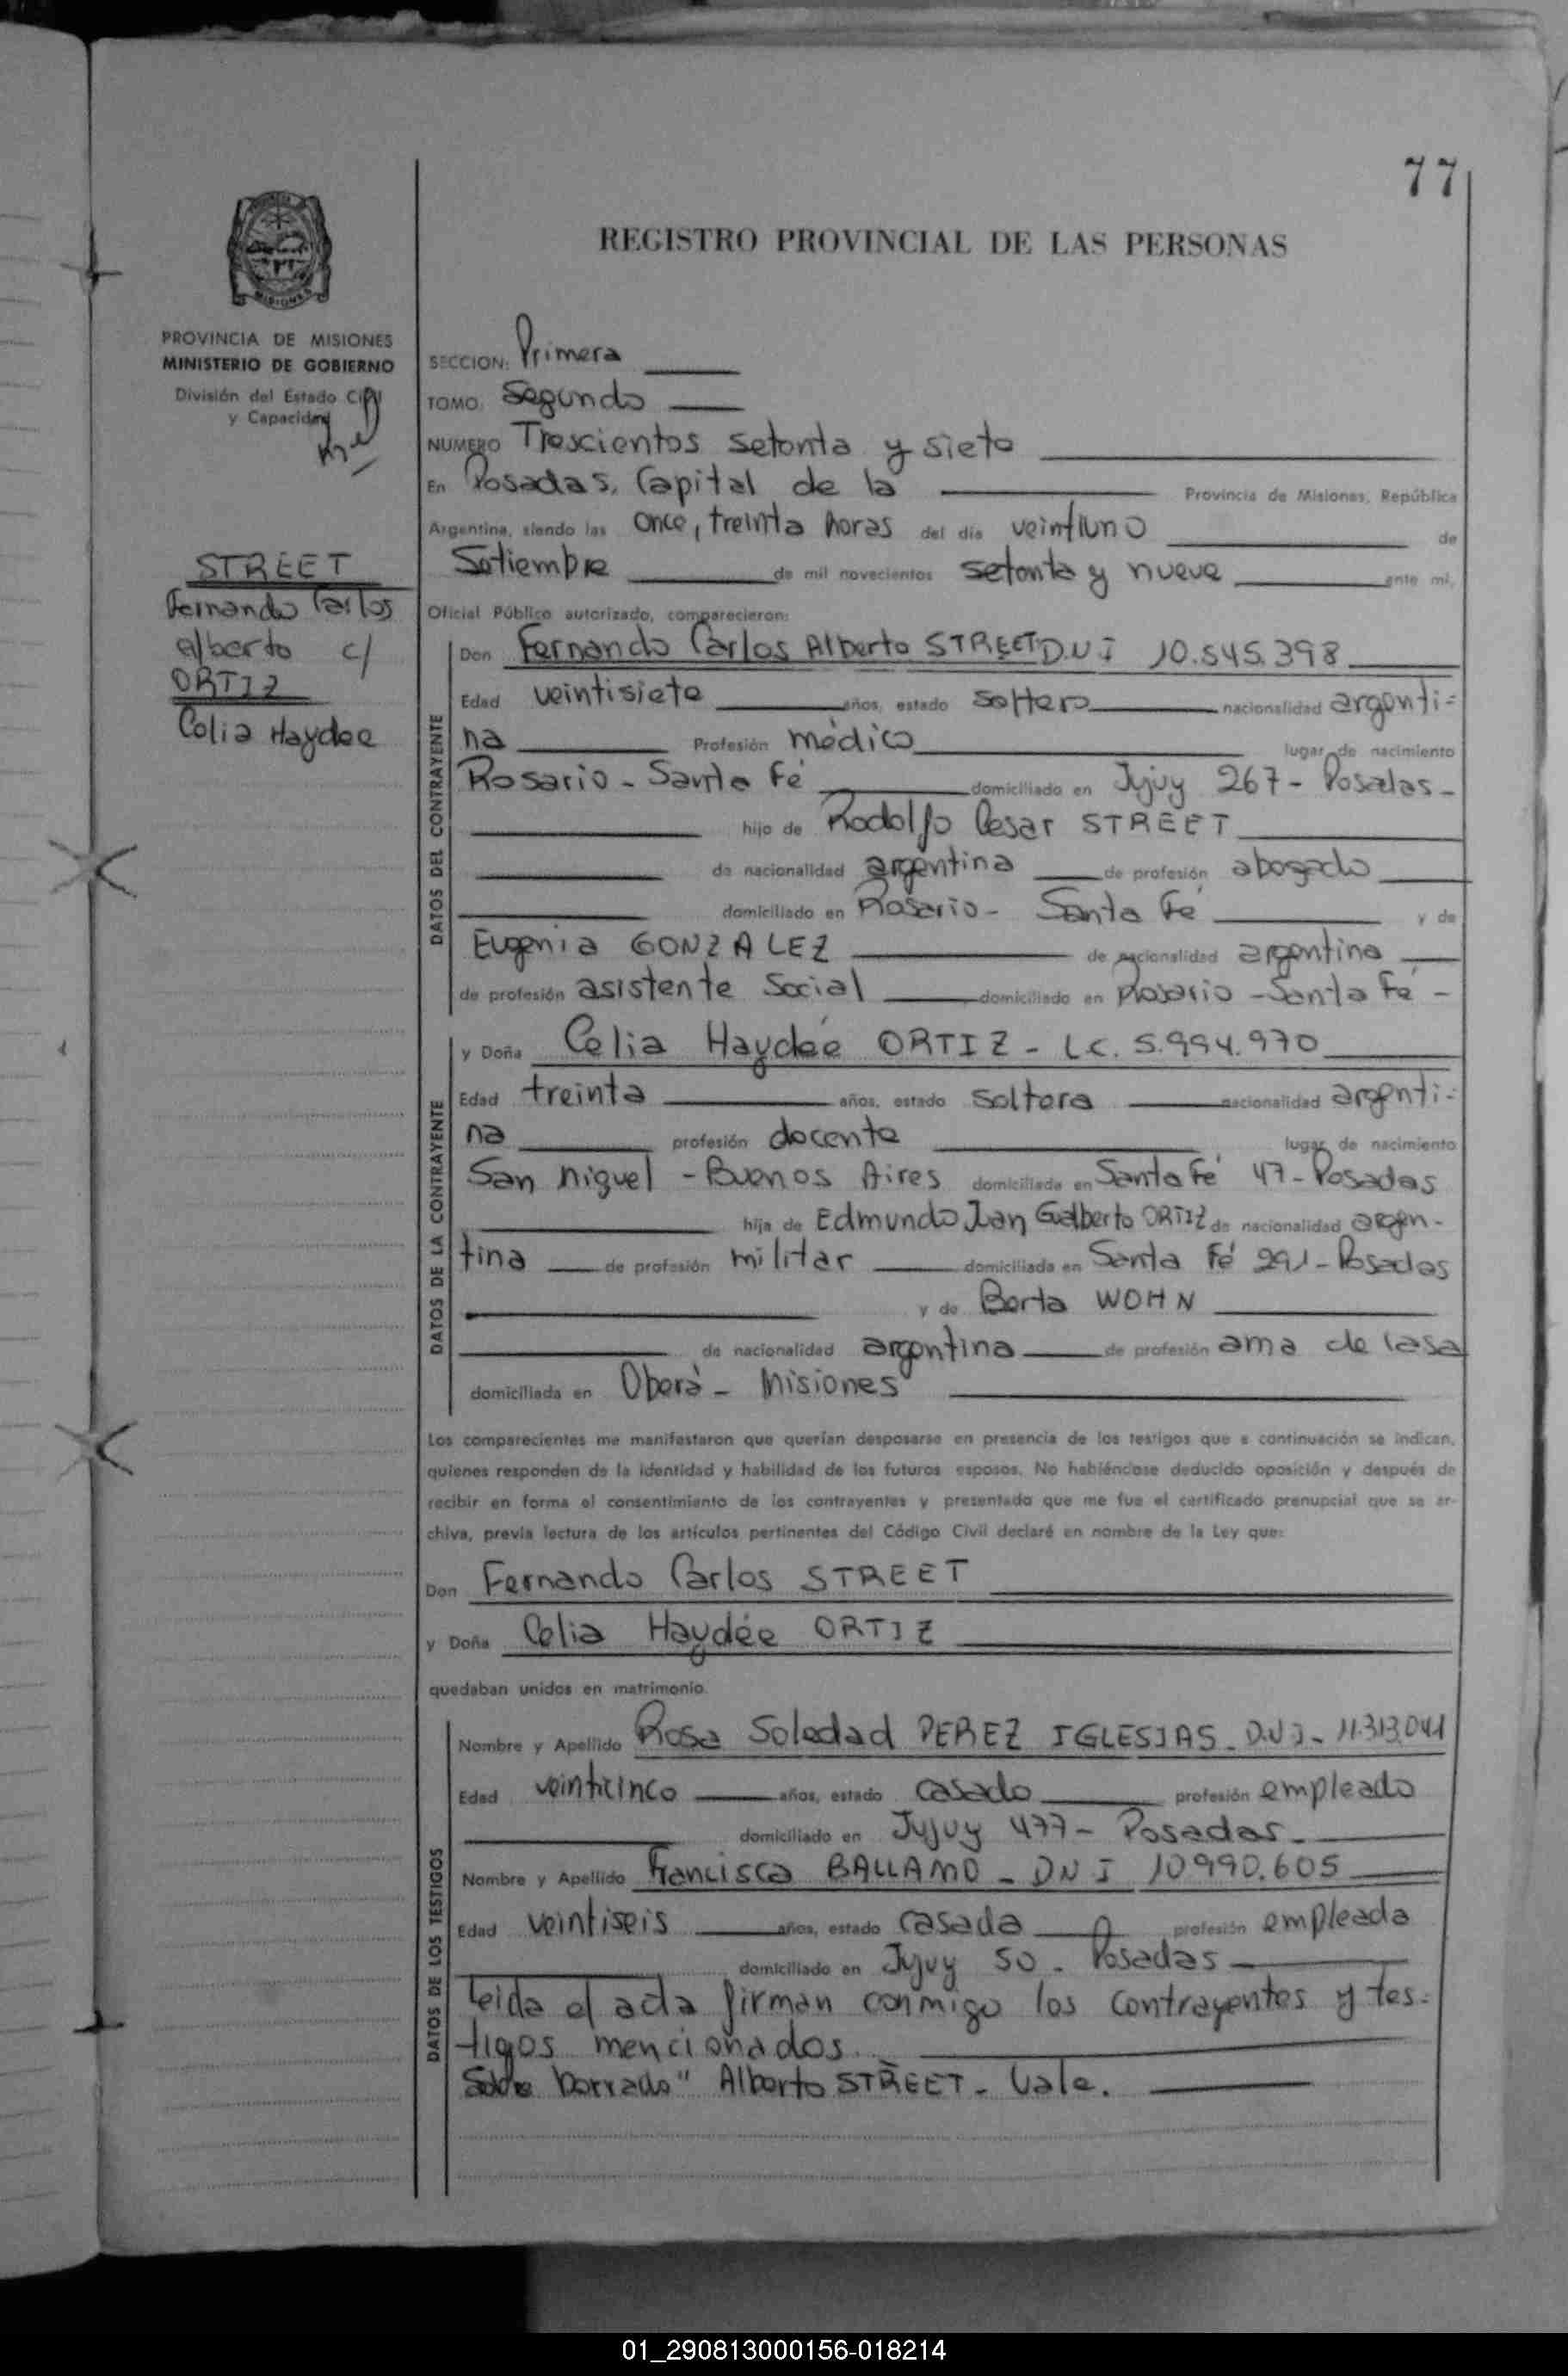 77
REGISTRO PROVINCIAL DE LAS PERSONAS
MISIONES
PROVINCIA DE MISIONES
MINISTERIO DE GOBIERNO
División del Estado Civil
y Capacidad
STREET
Fernando Carlos
alberto c/
ORTIZ
Celia Haydee
SECCION: Primera
TOMO: Segundo
NUMERO Trescientos setenta y siete
En Posadas, Capital de la Provincia de Misiones, República
Argentina, siendo las once, treinta horas del día veintiuno de
Setiembre de mil novecientos setenta y nueve ante mí,
Oficial Público autorizado, comparecieron:
DATOS DEL CONTRAYENTE
Don Fernando Carlos Alberto STREET D.N.I 10.545.398
Edad veintisiete años, estado soltero nacionalidad argenti=
na Profesión médico lugar de nacimiento
Rosario - Santa Fé domiciliado en Jujuy 267 - Posadas -
hijo de Rodolfo Cesar STREET
de nacionalidad argentina de profesión abogado
domiciliado en Rosario - Santa Fé y de
Eugenia GONZALEZ de nacionalidad argentina
de profesión asistente Social domiciliado en Rosario - Santa Fé -
DATOS DE LA CONTRAYENTE
y Doña Celia Haydée ORTIZ - L.C. 5.994.970
Edad treinta años, estado soltera nacionalidad argenti=
na profesión docente lugar de nacimiento
San Miguel - Buenos Aires domiciliada en Santa Fé 47 - Posadas
hija de Edmundo Juan Gualberto ORTIZ de nacionalidad argen-
tina de profesión militar domiciliada en Santa Fé 291 - Posadas
y de Berta WOHN
de nacionalidad argentina de profesión ama de casa
domiciliada en Oberá - Misiones
Los comparecientes me manifestaron que querían desposarse en presencia de los testigos que a continuación se indican,
quienes responden de la identidad y habilidad de los futuros esposos. No habiéndose deducido oposición y después de
recibir en forma el consentimiento de los contrayentes y presentado que me fue el certificado prenupcial que se ar-
chiva, previa lectura de los artículos pertinentes del Código Civil declaré en nombre de la Ley que:
Don Fernando Carlos STREET
y Doña Celia Haydée ORTIZ
quedaban unidos en matrimonio.
DATOS DE LOS TESTIGOS
Nombre y Apellido Rosa Soledad PEREZ IGLESIAS - D.N.I - 11.313.041
Edad veinticinco años, estado casado profesión empleado
domiciliado en Jujuy 477 - Posadas -
Nombre y Apellido Francisca BALLAMO - DNI 10990.605
Edad veintiseis años, estado casada profesión empleada
domiciliado en Jujuy 50 - Posadas
Leida el acta firman conmigo los contrayentes y tes=
tigos mencionados.
Sobre borrado" Alberto STREET - Vale.
01_290813000156-018214